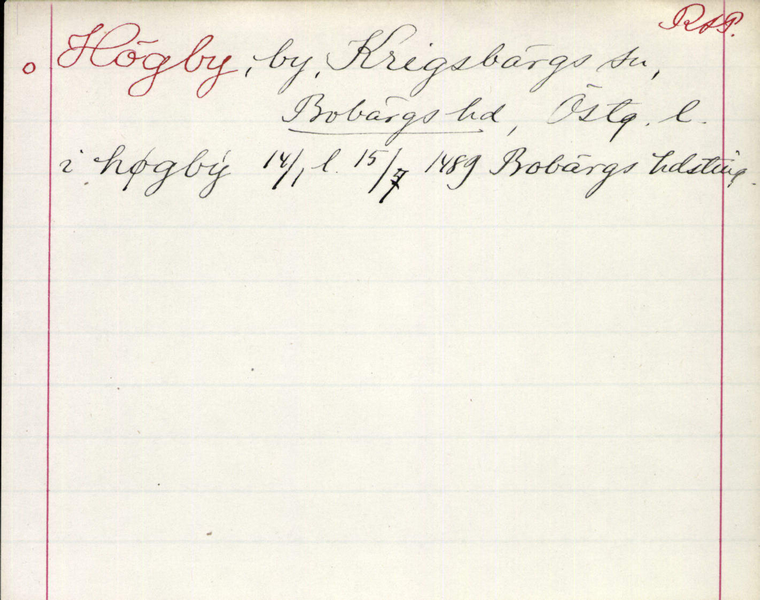 RAP.
o Högby, by, Krigsbärgs sn,
Bobärgs hd, Östg. l.
i høgbẏ 14/1 l. 15/7 1489 Bobärgs hdsting.